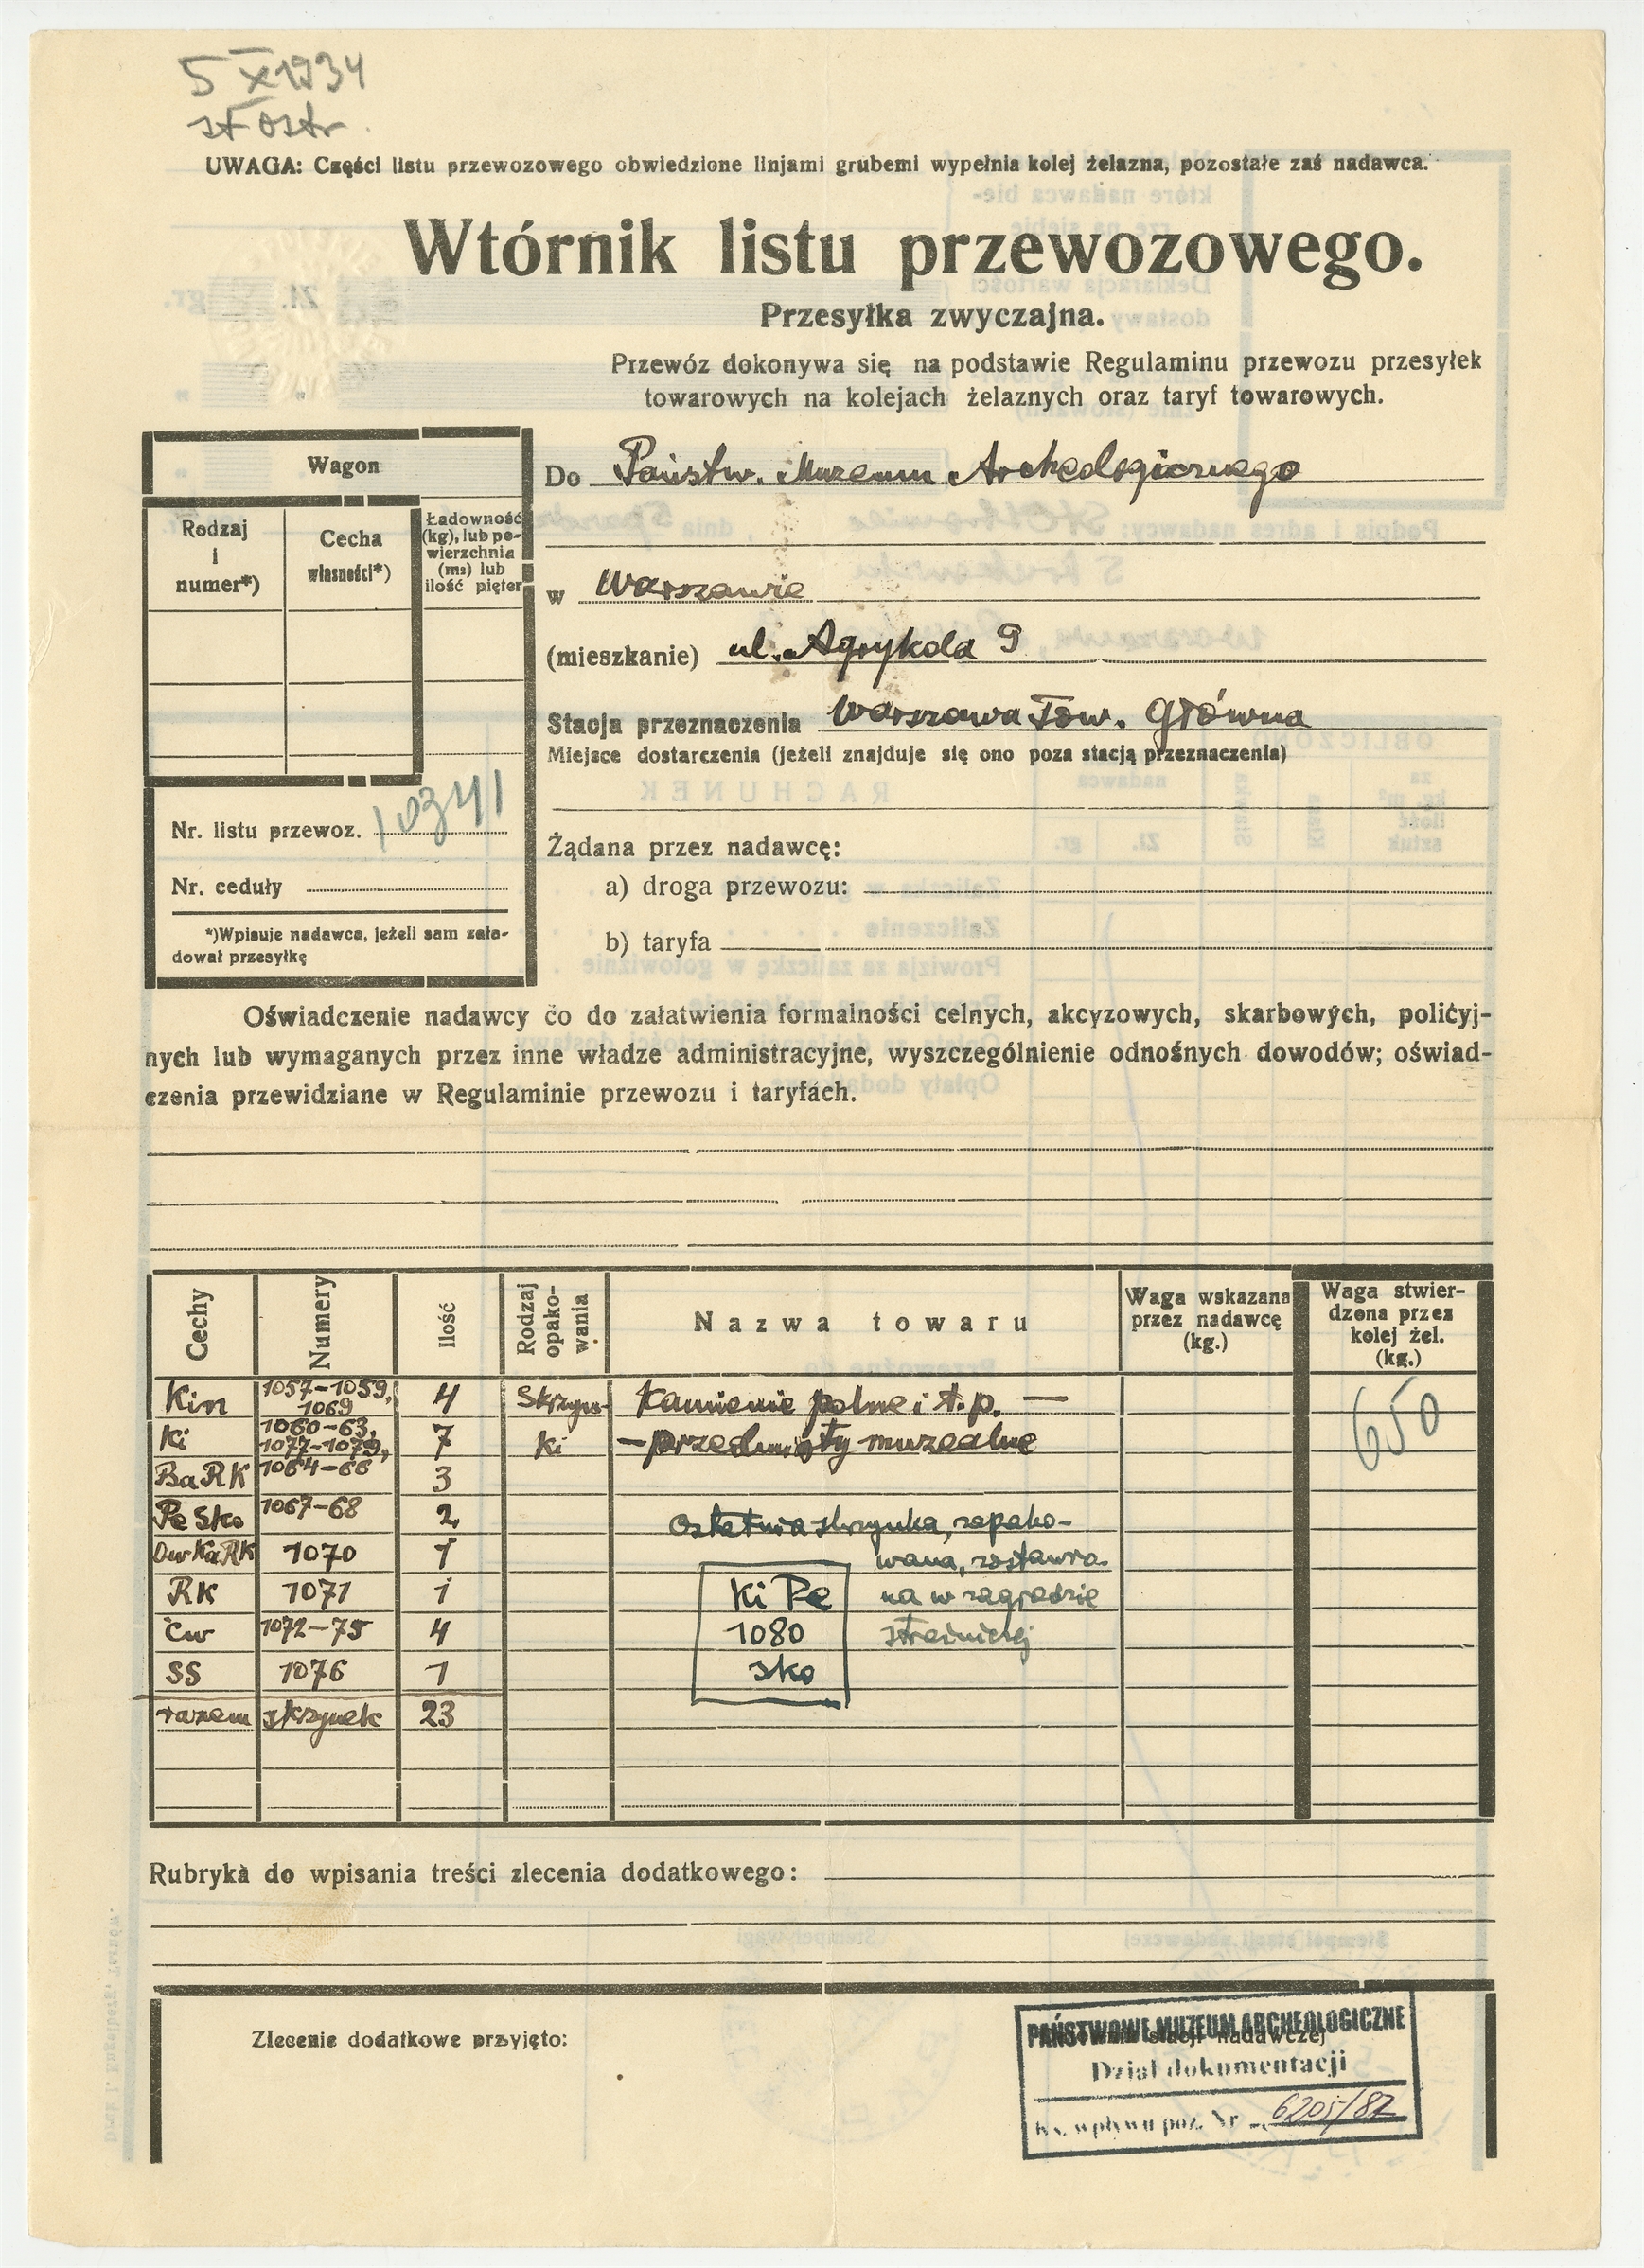 5 X 1934
st Ostr.
UWAGA: Części listu przewozowego obwiedzione linjami grubemi wypełnia kolej żelazna, pozostałe zaś nadawca.
Wtórnik listu przewozowego.
Przesyłka zwyczajna.
Przewóz dokonywa się na podstawie Regulaminu przewozu przesyłek
towarowych na kolejach żelaznych oraz taryf towarowych.
Wagon
Rodzaj i numer*)
Cecha własności*)
Ładowność (kg), lub powierzchnia (m2) lub ilość pięter
Do Państw. Muzeum Archeologicznego
w Warszawie
(mieszkanie) ul. Agrykola 9
Stacja przeznaczenia Warszawa Tow. Główna
Miejsce dostarczenia (jeżeli znajduje się ono poza stacją przeznaczenia)
Nr. listu przewoz. 10341
Nr. ceduły
*)Wpisuje nadawca, jeżeli sam zała-
dował przesyłkę
Żądana przez nadawcę:
a) droga przewozu:
b) taryfa
Oświadczenie nadawcy co do załatwienia formalności celnych, akcyzowych, skarbowych, policyj-
nych lub wymaganych przez inne władze administracyjne, wyszczególnienie odnośnych dowodów; oświad-
czenia przewidziane w Regulaminie przewozu i taryfach.
Cechy Numery Ilość Rodzaj opako-wania Nazwa towaru Waga wskazana przez nadawcę (kg.) Waga stwier-dzona przez kolej żel. (kg.)
Kin 1057-1059, 1069 4 Skrzyn- Kamienie polne i t.p. — 650
Ki 1060-63, 1077-1079, 7 ki — przedmioty muzealne
BaRK 1064-66 3
Pe Sko 1067-68 2 Ostatnia skrzynka, zapako-
OwKaRK 1070 1 wana, zostawio-
RK 1071 1 Ki Pe na w zagrodzie
Cw 1072-75 4 1080 strażniczej
SS 1076 1 sko
razem skrzynek 23
Rubryka do wpisania treści zlecenia dodatkowego:
Zlecenie dodatkowe przyjęto:
stacji nadawczej
PAŃSTWOWE MUZEUM ARCHEOLOGICZNE
Dział dokumentacji
Ks. wpływu poz. Nr 6205/82